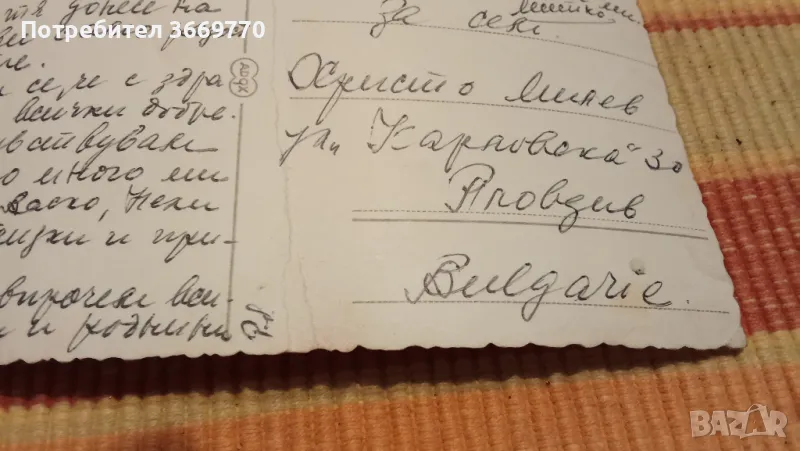 Потребител 3669770
донесе на
АШХ
се, че с здра
всички добре.
вствувам
о много ми
Васко, Нели
и при-
впрочем вси-
и роднини
За
Христо Милев
ул. "Карловска" 30
Пловдив
Bulgarie.
BAZAR